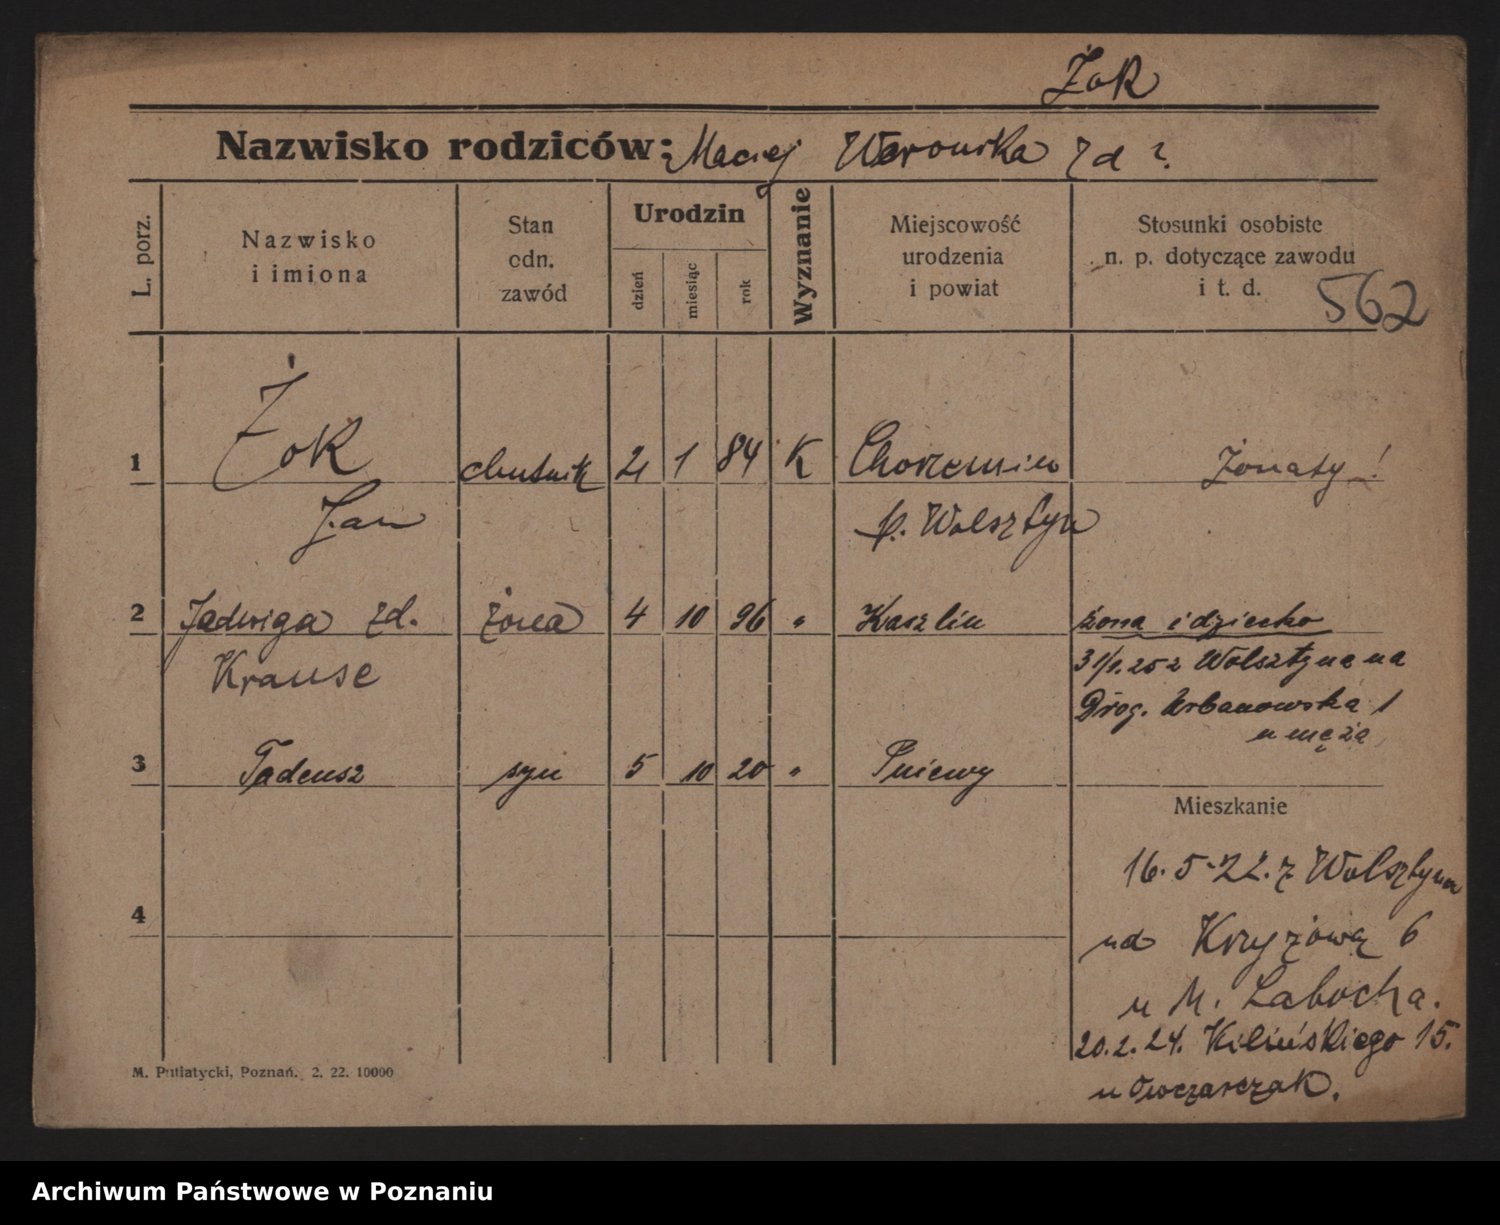 Żok
Nazwisko rodziców: Maciej Weronika zd ?
L. porz.
Nazwisko
i imiona
Stan
odn.
zawód
Urodzin
dzień
miesiąc
rok
Wyznanie
Miejscowość
urodzenia
i powiat
Stosunki osobiste
n. p. dotyczące zawodu
i t. d.
562
1 Żok 1 84 K Żonaty!
Jan p. Wolsztyn
2 Jadwiga zd. żona 4 10 96 " żona i dziecko
Krause Wolsztyna na
Drog. Urbanowska 1
u męża
3 Tadeusz syn 5 10 20 " Pniewy
Mieszkanie
16.5.22. z Wolsztyna
4
ud Krzyżową 6
u M. Łabocha.
20.2.24. Kilińskiego 15.
u Owczarczak.
M. Putiatycki, Poznań. 2. 22. 10000
Archiwum Państwowe w Poznaniu